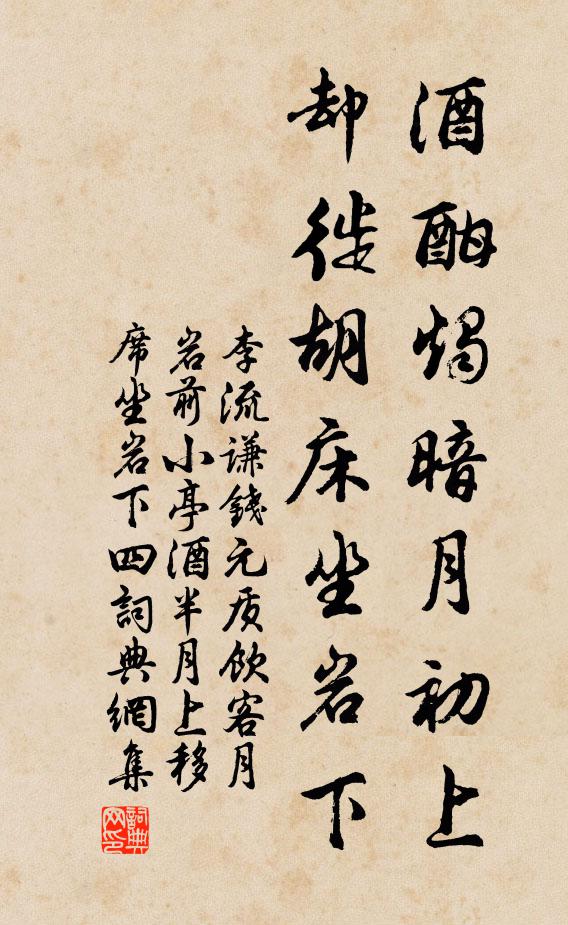 酒酣燭暗月初上
却徙胡床坐岩下
李流謙錢元质飲客月
岩前小亭酒半月上移
席坐岩下四詞典網集
詞典
网印